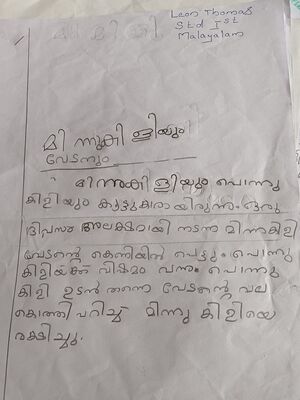 Leon Thomas
Std Ist
Malayalam
മിന്നുകിളിയും
വേടനും
മിന്നുകിളിയും പൊന്നു
കിളിയും കൂട്ടുകാരായിരുന്നു. ഒരു
ദിവസം അലക്ഷമായി നടന്ന മിന്നുകിളി
വേടന്റെ കെണിയിൽ പെട്ടു. പൊന്നു
കിളിയ്ക്ക് വിഷമം വന്നു. പൊന്നു
കിളി ഉടൻ തന്നെ വേടന്റെ വല
കൊത്തി പറിച്ച് മിന്നു കിളിയെ
രക്ഷിച്ചു.